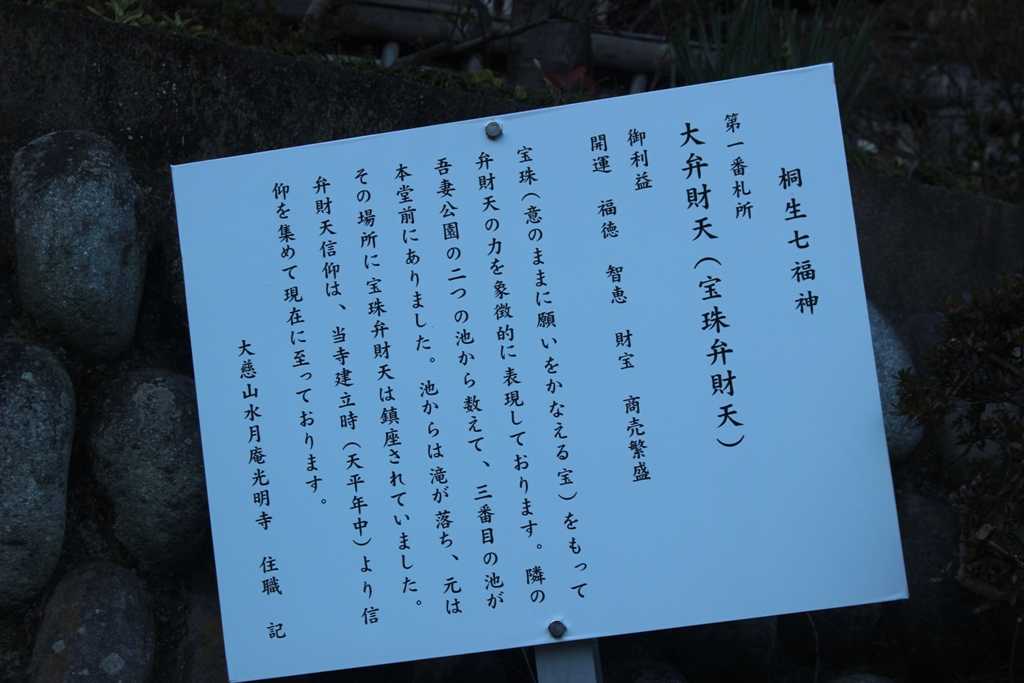 桐生七福神
第一番札所
大弁財天(宝珠弁財天)
御利益
開運　福徳　智恵　財宝　商売繁盛
宝珠(意のままに願いをかなえる宝)をもって
弁財天の力を象徴的に表現しております。隣の
吾妻公園の二つの池から数えて、三番目の池が
本堂前にありました。池からは滝が落ち、元は
その場所に宝珠弁財天は鎮座されていました。
弁財天信仰は、当寺建立時(天平年中)より信
仰を集めて現在に至っております。
大慈山水月庵光明寺　住職　記